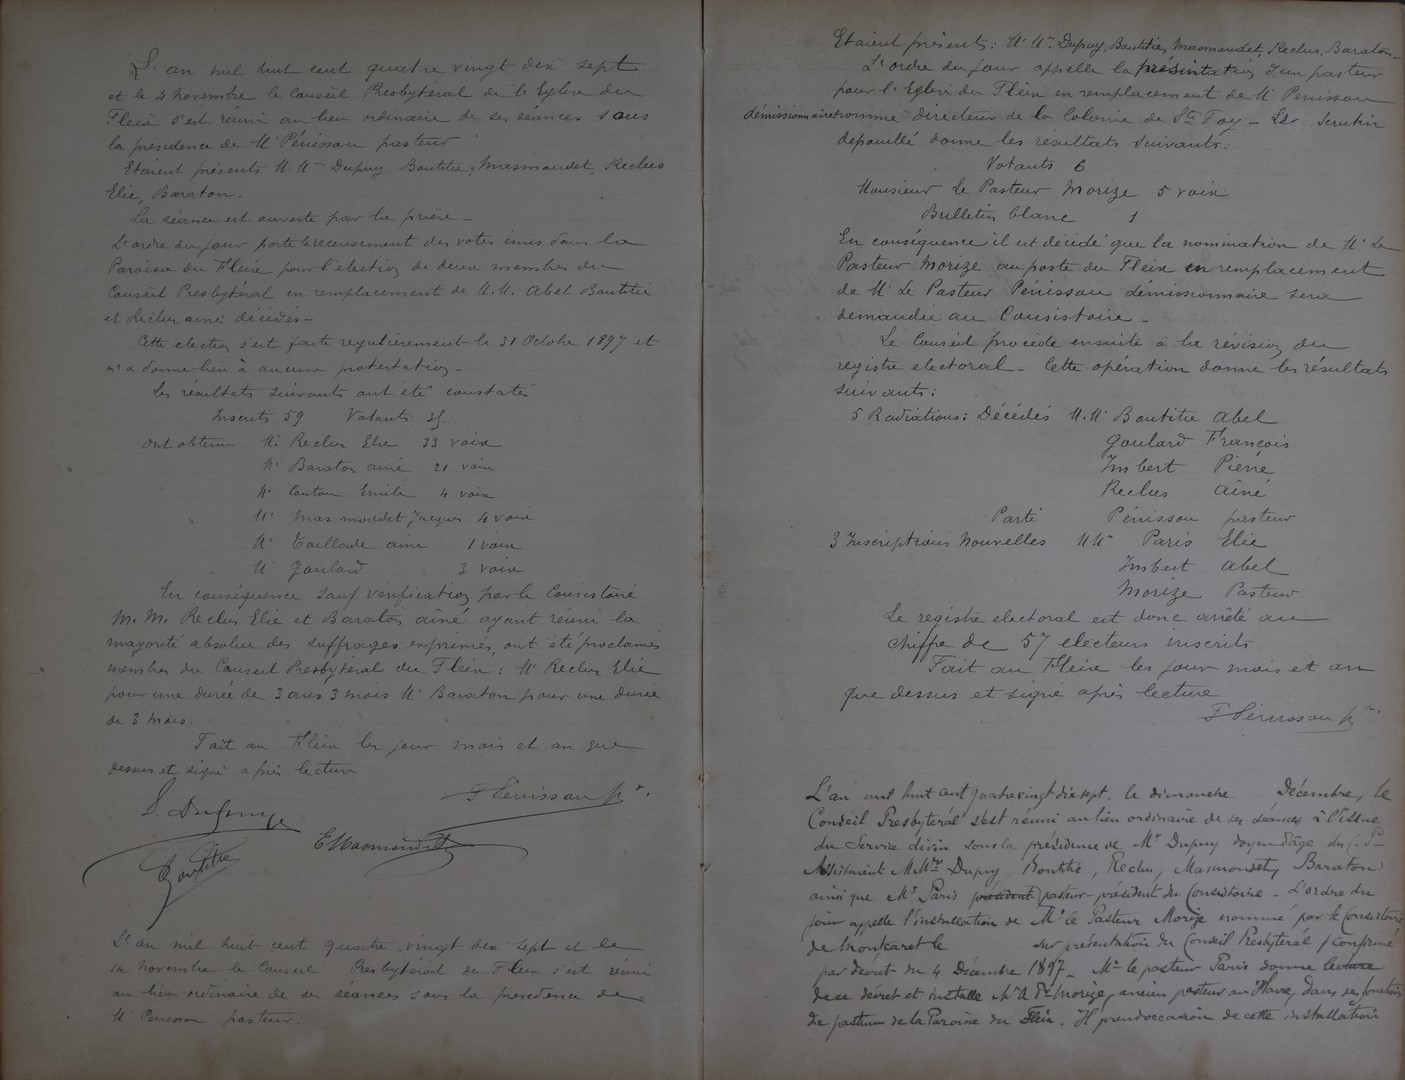 L'an mil huit cent quatre vingt dix sept
et le 4 novembre le Conseil Presbytéral de l'Eglise du
Fleix s'est réuni au lieu ordinaire de ses séances sous
la présidence de Mr Pénissou pasteur
Etaient présents M.Mrs Dupuy, Boutitie, Masmondet, Reclus
Elie, Baraton.
La séance est ouverte par la prière —
L'ordre du jour porte le recensement des votes émis dans la
Paroisse du Fleix pour l'election de deux membres du
Conseil Presbytéral en remplacement de M.M. Abel Boutitie
et Reclus ainé décédés —
Cette election s'est faite regulièrement le 31 Octobre 1897 et
n'a donné lieu à aucune protestation —
Les résultats suivants ont été constatés
Inscrits 59 Votants 35
ont obtenu Mr Reclus Elie 33 voix
Mr Baraton ainé 21 voix
Mr Coutou Emile 4 voix
Mr Masmondet Jacques 4 voix
Mr Tailloude ainé 1 voix
Mr Goulard 3 voix
En conséquence sauf vérification par le Consistoire
M.M. Reclus Elie et Baraton ainé ayant réuni la
majorité absolue des suffrages exprimés, ont été proclamés
membres du Conseil Presbytéral du Fleix : Mr Reclus Elie
pour une durée de 3 ans 3 mois Mr Baraton pour une durée
de 3 mois.
Fait au Fleix les jour mois et an que
dessus et signé après lecture
F Pénissou pr.
S. Dupuy
E Masmondet
Boutitie
L'an mil huit cent quatre vingt dix sept et le
14 novembre le Conseil Presbytéral du Fleix s'est réuni
au lieu ordinaire de ses séances sous la présidence de
Mr Penissou pasteur.
Etaient présents : M Mrs Dupuy, Boutitie, Masmondet, Reclus, Baraton —
L'ordre du jour appelle la présentation d'un pasteur
pour l'Eglise du Fleix en remplacement de Mr Penissou
démissionnaire nommé directeur de la Colonie de Ste Foy — Le scrutin
dépouillé donne les résultats suivants :
Votants 6
Monsieur Le Pasteur Morize 5 voix
Bulletin blanc 1
En conséquence il est décidé que la nomination de Mr Le
Pasteur Morize au poste du Fleix en remplacement
de Mr Le Pasteur Pénissou démissionnaire sera
demandée au Consistoire —
Le Conseil procède ensuite à la révision du
registre electoral — Cette opération donne les résultats
suivants :
5 Radiations : Décédés M.Mr Boutitie Abel
Goulard François
Imbert Pierre
Reclus Ainé
Parti Pénissou pasteur
3 Inscriptions Nouvelles MMrs Paris Elie
Imbert Abel
Morize Pasteur
Le registre electoral est donc arrêté au
chiffre de 57 electeurs inscrits
Fait au Fleix les jour mois et an
que dessus et signé après lecture
F Pénissou pr.
L'an mil huit cent quatre vingt dix sept, le dimanche Décembre, le
Conseil Presbytéral s'est réuni au lieu ordinaire de ses séances à l'issue
du Service divin sous la présidence de Mr Dupuy doyen d'âge du C. P.
Assistaient M.Mrs Dupuy, Boutitie, Reclus, Masmondet, Baraton
ainsi que Mr Paris président pasteur-président du Consistoire — L'ordre du
jour appelle l'installation de Mr le Pasteur Morize nommé par le Consistoire
de Montcaret le sur présentation du Conseil Presbytéral, confirmé
par décret du 4 Décembre 1897 — Mr le pasteur Paris donne lecture
de ce décret et installe Mr Morize, ancien pasteur au Havre, dans ses fonctions
de pasteur de la Paroisse du Fleix. Il prend occasion de cette installation